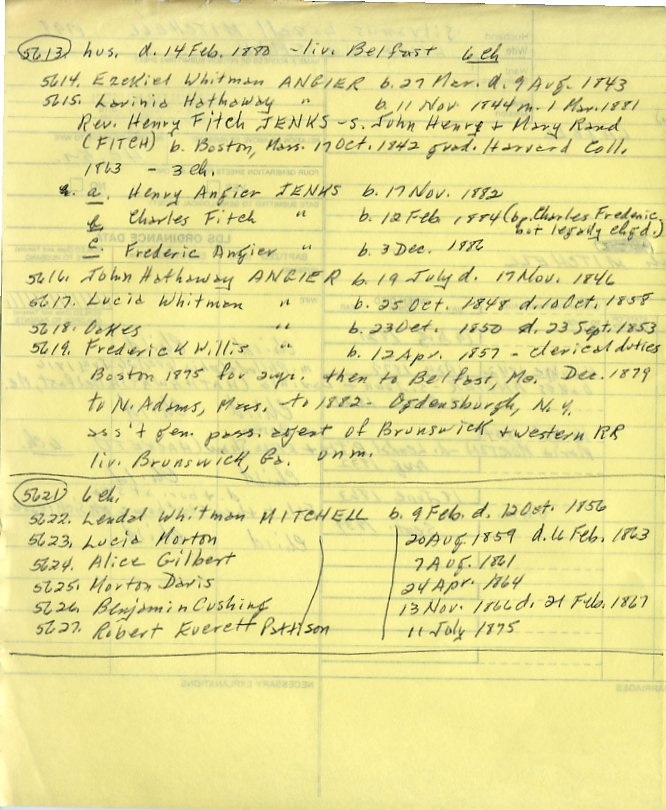 5613. hus. d. 14 Feb. 1880 - liv. Belfast 6 ch
5614. Ezekiel Whitman ANGIER b. 27 Mar. d. 9 Aug. 1843
5615. Lavinia Hathaway " b. 11 Nov 1844 m. 1 Mar. 1881
Rev. Henry Fitch JENKS - s. John Henry + Mary Rand
(FITCH) b. Boston, Mass. 17 Oct. 1842 grad. Harvard Coll.
1863 - 3 ch.
a. Henry Angier JENKS b. 17 Nov. 1882
b. Charles Fitch " b. 12 Feb 1884 (bp. Charles Frederic,
but legally chgd.)
c. Frederic Angier " b. 3 Dec. 1886
5616. John Hathaway ANGIER b. 19 July d. 17 Nov. 1846
5617. Lucia Whitman " b. 25 Oct. 1848 d. 10 Oct. 1858
5618. Oakes " b. 23 Oct. 1850 d. 23 Sept. 1853
5619. Frederick Willis " b. 12 Apr. 1857 - clerical duties
Boston 1875 for then to Belfast, Me. Dec. 1879
to N. Adams, Mass. to 1882 - Ogdensburgh, N.Y.
ass't gen. pass. agent of Brunswick + Western RR
liv. Brunswick, Ga. unm.
5621 6 ch.
5622. Lendal Whitman MITCHELL b. 9 Feb. d. 12 Oct. 1856
5623. Lucia Morton 20 Aug. 1859 d. 6 Feb. 1863
5624. Alice Gilbert 7 Aug. 1861
5625. Morton Davis 24 Apr. 1864
5626. Benjamin Cushing 13 Nov. 1866 d. 21 Feb. 1867
5627. Robert Everett Pattison 11 July 1875